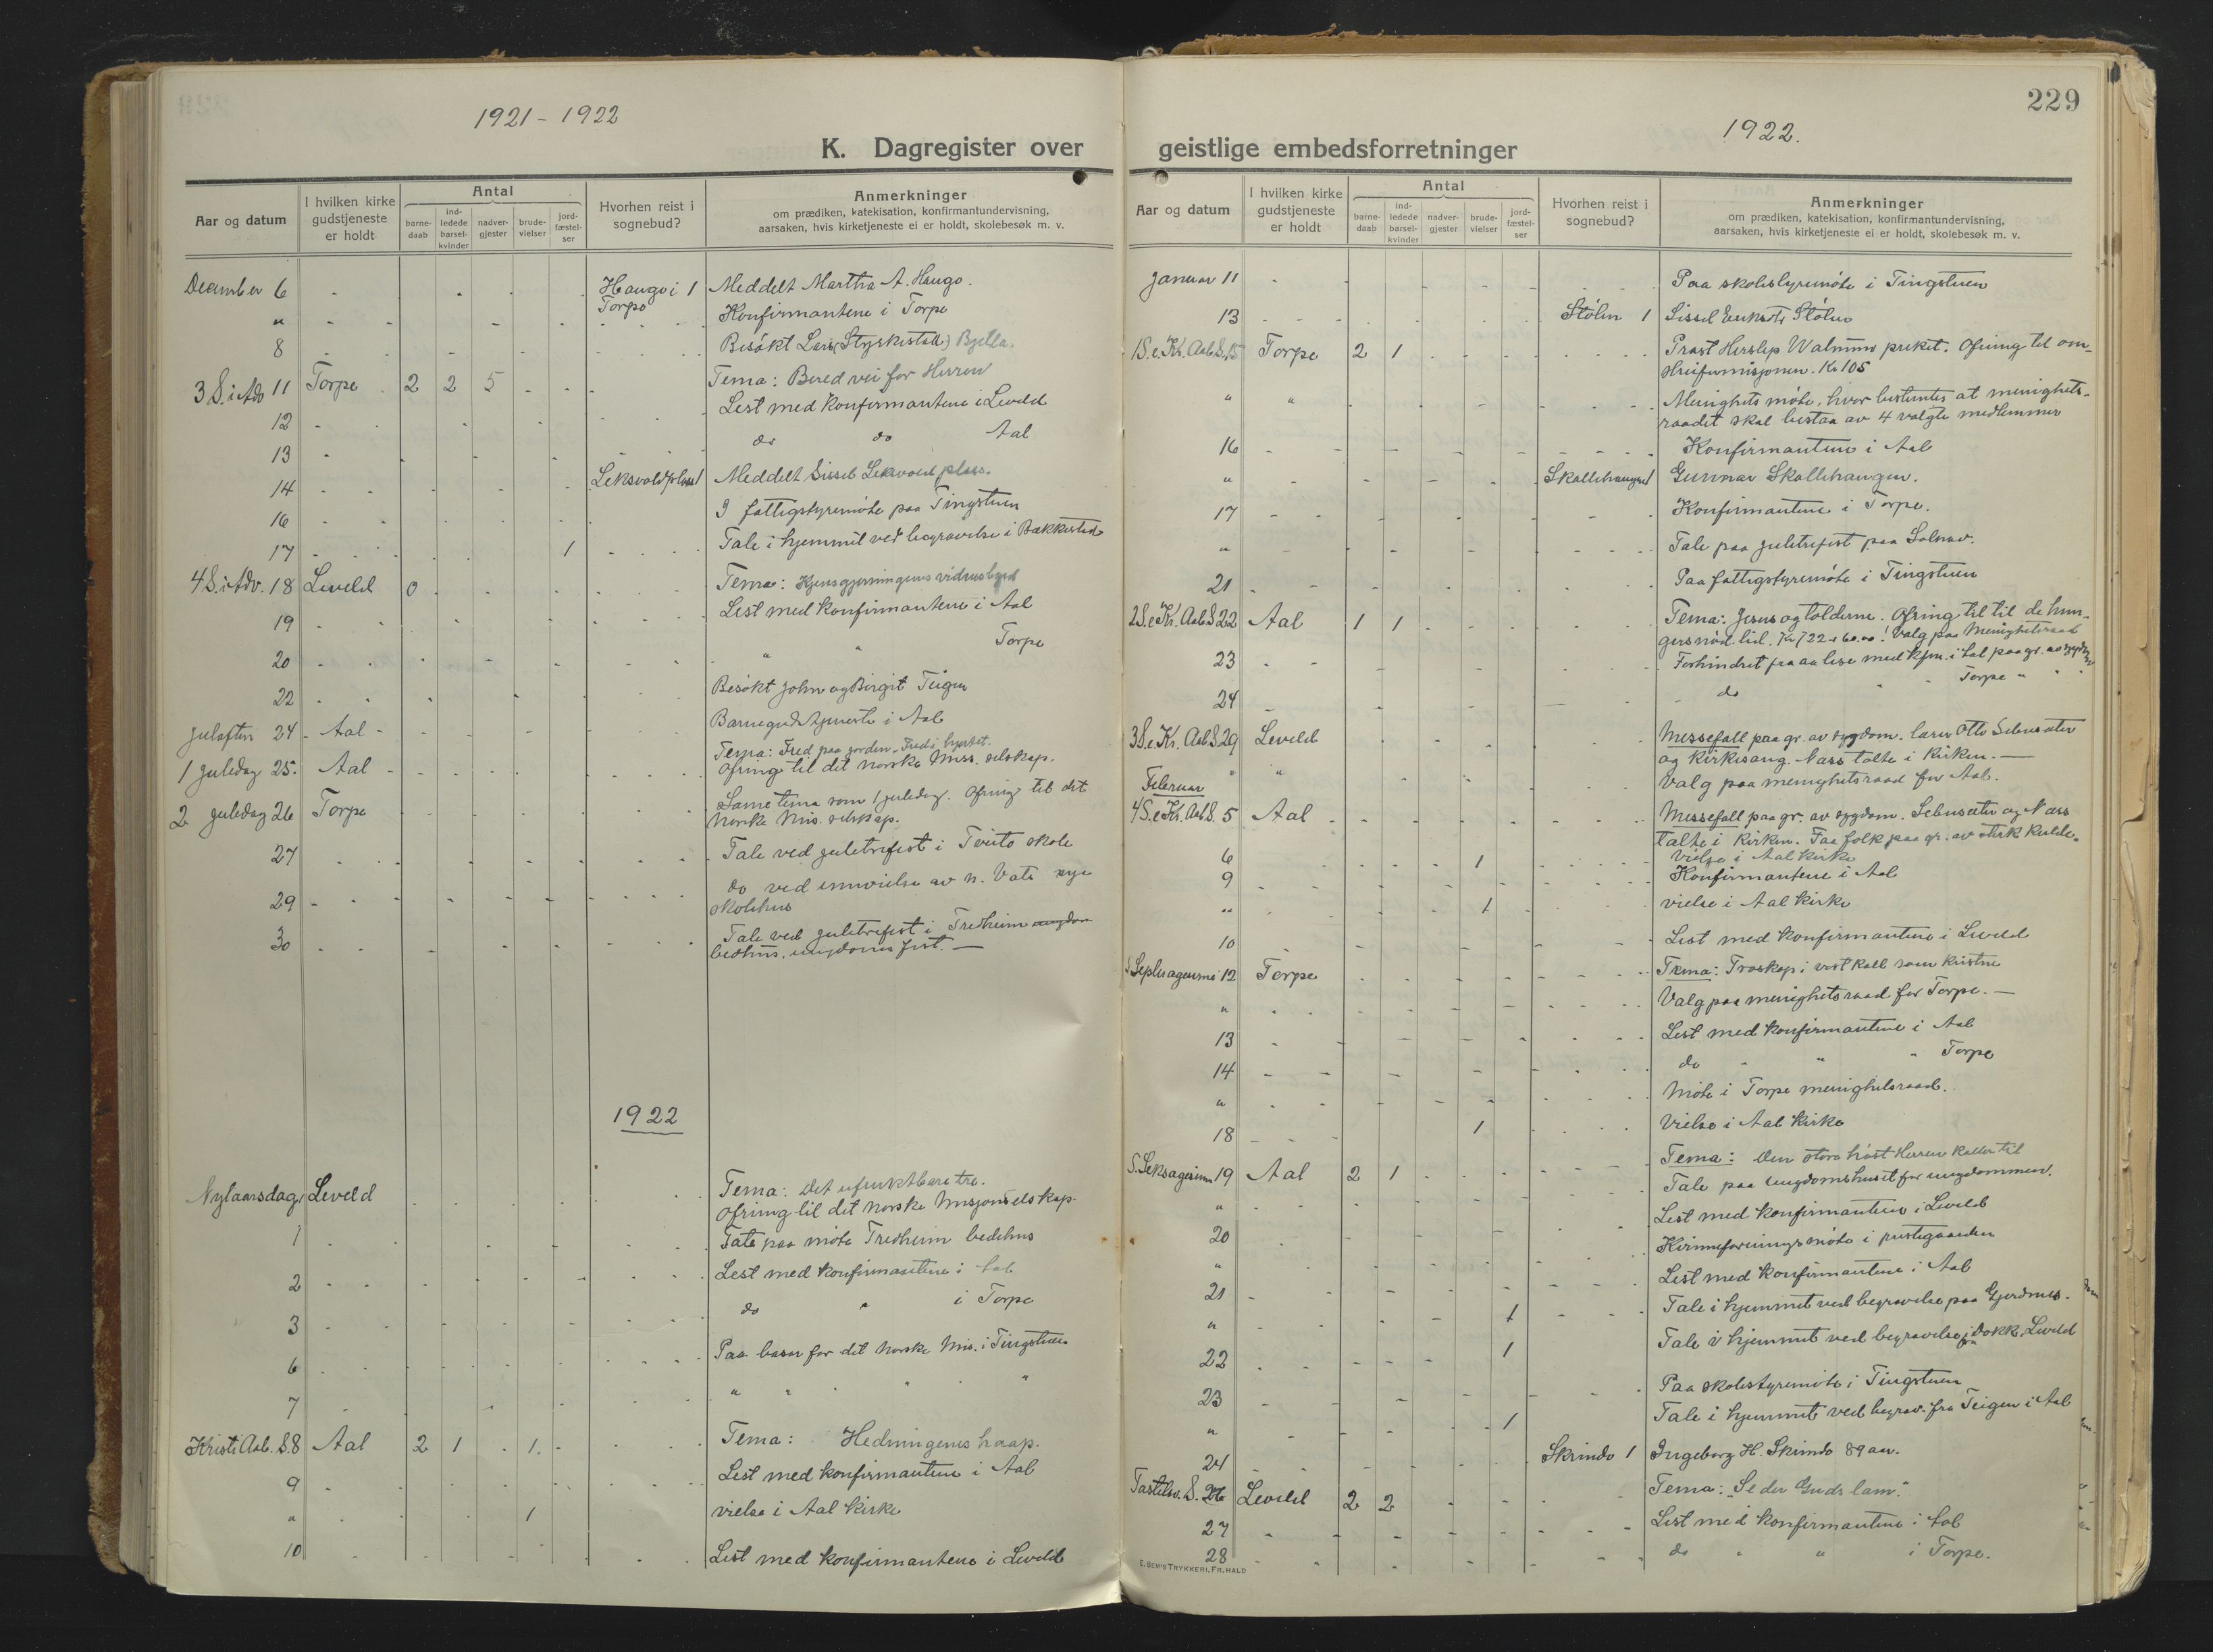 1921 - 1922
K. Dagregister over
Aar og datum
I hvilken kirke gudstjeneste er holdt
Antal
barne-daab
ind-ledede barsel-kvinder
nadver-gjester
brude-vielser
jord-fæstel-ser
Hvorhen reist i sognebud?
Anmerkninger
om prædiken, katekisation, konfirmantundervisning,
aarsaken, hvis kirketjeneste ei er holdt, skolebesøk m. v.
December 6 Haugo i Torpo 1 Meddelt Martha A. Haugo.
" Konfirmantene i Torpo
8 Besøkt Lars (Stryskistalt) Bjella.
3 S. i Adv 11 Torpo 2 2 5 Tema: Bered vei for Herren
12 Lest med konfirmantene i Leveld
13 do do Aal
14 Leksvoldplass 1 Meddelt Sissel Leksvold plass.
16 I fattigstyremöte paa Tingstuen
17 1 Tale i hjemmet ved begravelse i Bakkestad
4 S. i Adv. 18 Leveld 0 Tema: vidnesbyrd
19 Lest med konfirmantene i Aal
20 " " Torpo
22 Besøkt John og Birgit Teigen
Juleaften 24 Aal Barnegudstjeneste i Aal
1 juledag 25. Aal Tema: Fred paa jorden - Fred i hjertet.
Ofring til det norske Miss. selskap.
2 juledag 26 Torpo Samme tema som 1 juledag. Ofring til det
Norske Mis. selskap.
27 Tale ved juletrefest i Tveito skole
29 do ved innvielse av n. Vats nye
skolehus
30 Tale ved juletrefest i Tredheim
bedehus, ungdoms fest. -
1922
Nyaarsdag Leveld Tema: Det ufruktbare tre.
Ofring til det norske Misjonsselskap.
1 Tale paa möte Tredheim bedehus
2 Lest med konfirmantene i Aal
3 do " i Torpo
6 Paa basar for det Norske Mis. i Tingstuen
7 " " " "
Kristi Aab. S. 8 Aal 2 1 1 Tema: Hedningenes haap.
9 Lest med konfirmantene i Aal
" 1 vielse i Aal kirke
10 Lest med konfirmantene i Leveld
229
1922.
geistlige embedsforretninger
Aar og datum
I hvilken kirke gudstjeneste er holdt
Antal
barne-daab
ind-ledede barsel-kvinder
nadver-gjester
brude-vielser
jord-fæstel-ser
Hvorhen reist i sognebud?
Anmerkninger
om prædiken, katekisation, konfirmantundervisning,
aarsaken, hvis kirketjeneste ei er holdt, skolebesøk m. v.
Januar 11 Paa skolestyremöte i Tingstuen
13 Stölen 1 Sissel Eriksdtr Stölen
1 S. e. Kr. Aab. S. 15 Torpo 2 1 Prost Herslep Walnum preket. Ofring til om-
streifermisjonen. Kr 105
" " Menighetsmöte, hvor bestemtes at menighets-
raadet skal bestaa av 4 valgte medlemmer
16 Konfirmantene i Aal
" Skallehaugen 1 Gunnar Skallehaugen.
17 Konfirmantene i Torpo.
" Tale paa juletrefest paa
21 Paa fattigstyremöte i Tingstuen
2 S. e. Kr. Aab S 22 Aal 1 1 Tema: Jesus og tolderne. Ofring til til de hun-
gersnød.lid. Valg paa Menighetsraad
23 Forhindret fra aa lese med kfm. i Aal paa gr. av sygdom
24 do " Torpo " "
3 S. e. Kr. Aab S 29 Leveld Messefall paa gr. av sygdom. lærer Otto Sebusæter
og kirkesang. Næss talte i kirken. -
" " Valg paa menighetsraad for Aal.
Februar
4 S. e. Kr. Aab S. 5 Aal Messefall paa gr. av sygdom. Sebusæter og Næss
talte i kirken. Faa folk paa gr. av sterk kulde.
6 1 Vielse i Aal kirke
9 Konfirmantene i Aal
" 1 vielse i Aal kirke
10 Lest med konfirmantene i Leveld
S. Septuagesima 12 Torpo Tema: Troskap i vort kall som kristne
" Valg paa menighetsraad for Torpo. -
13 Lest med konfirmantene i Aal
14 do " " " Torpo
" Möte i Torpo menighetsraad.
18 1 Vielse i Aal kirke
S. Seksagesima 19 Aal 2 1 Tema: Den store høst Herren kaller til
" Tale paa Ungdomshuset for ungdommen.
20 Lest med konfirmantene i Leveld
" Kvinneforeningsmöte i prestegaarden
21 Lest med konfirmantene i Aal
" 1 Tale i hjemmet ved begravelse paa Gjerdmes.
22 1 Tale i hjemmet ved begravelse Dokk, Leveld
23 Paa skolestyremöte i Tingstuen
" 1 Tale i hjemmet ved begrav. fra Teigen i Aal
24 Skrindo 1 Ingeborg H. Skrindo 89 aar.
Fastelav. S. 26 Leveld 2 2 Tema: "Se der Guds lam."
27 Lest med konfirmantene i Aal
28 do " " i Torpo.
E. SEM'S TRYKKERI, FR.HALD